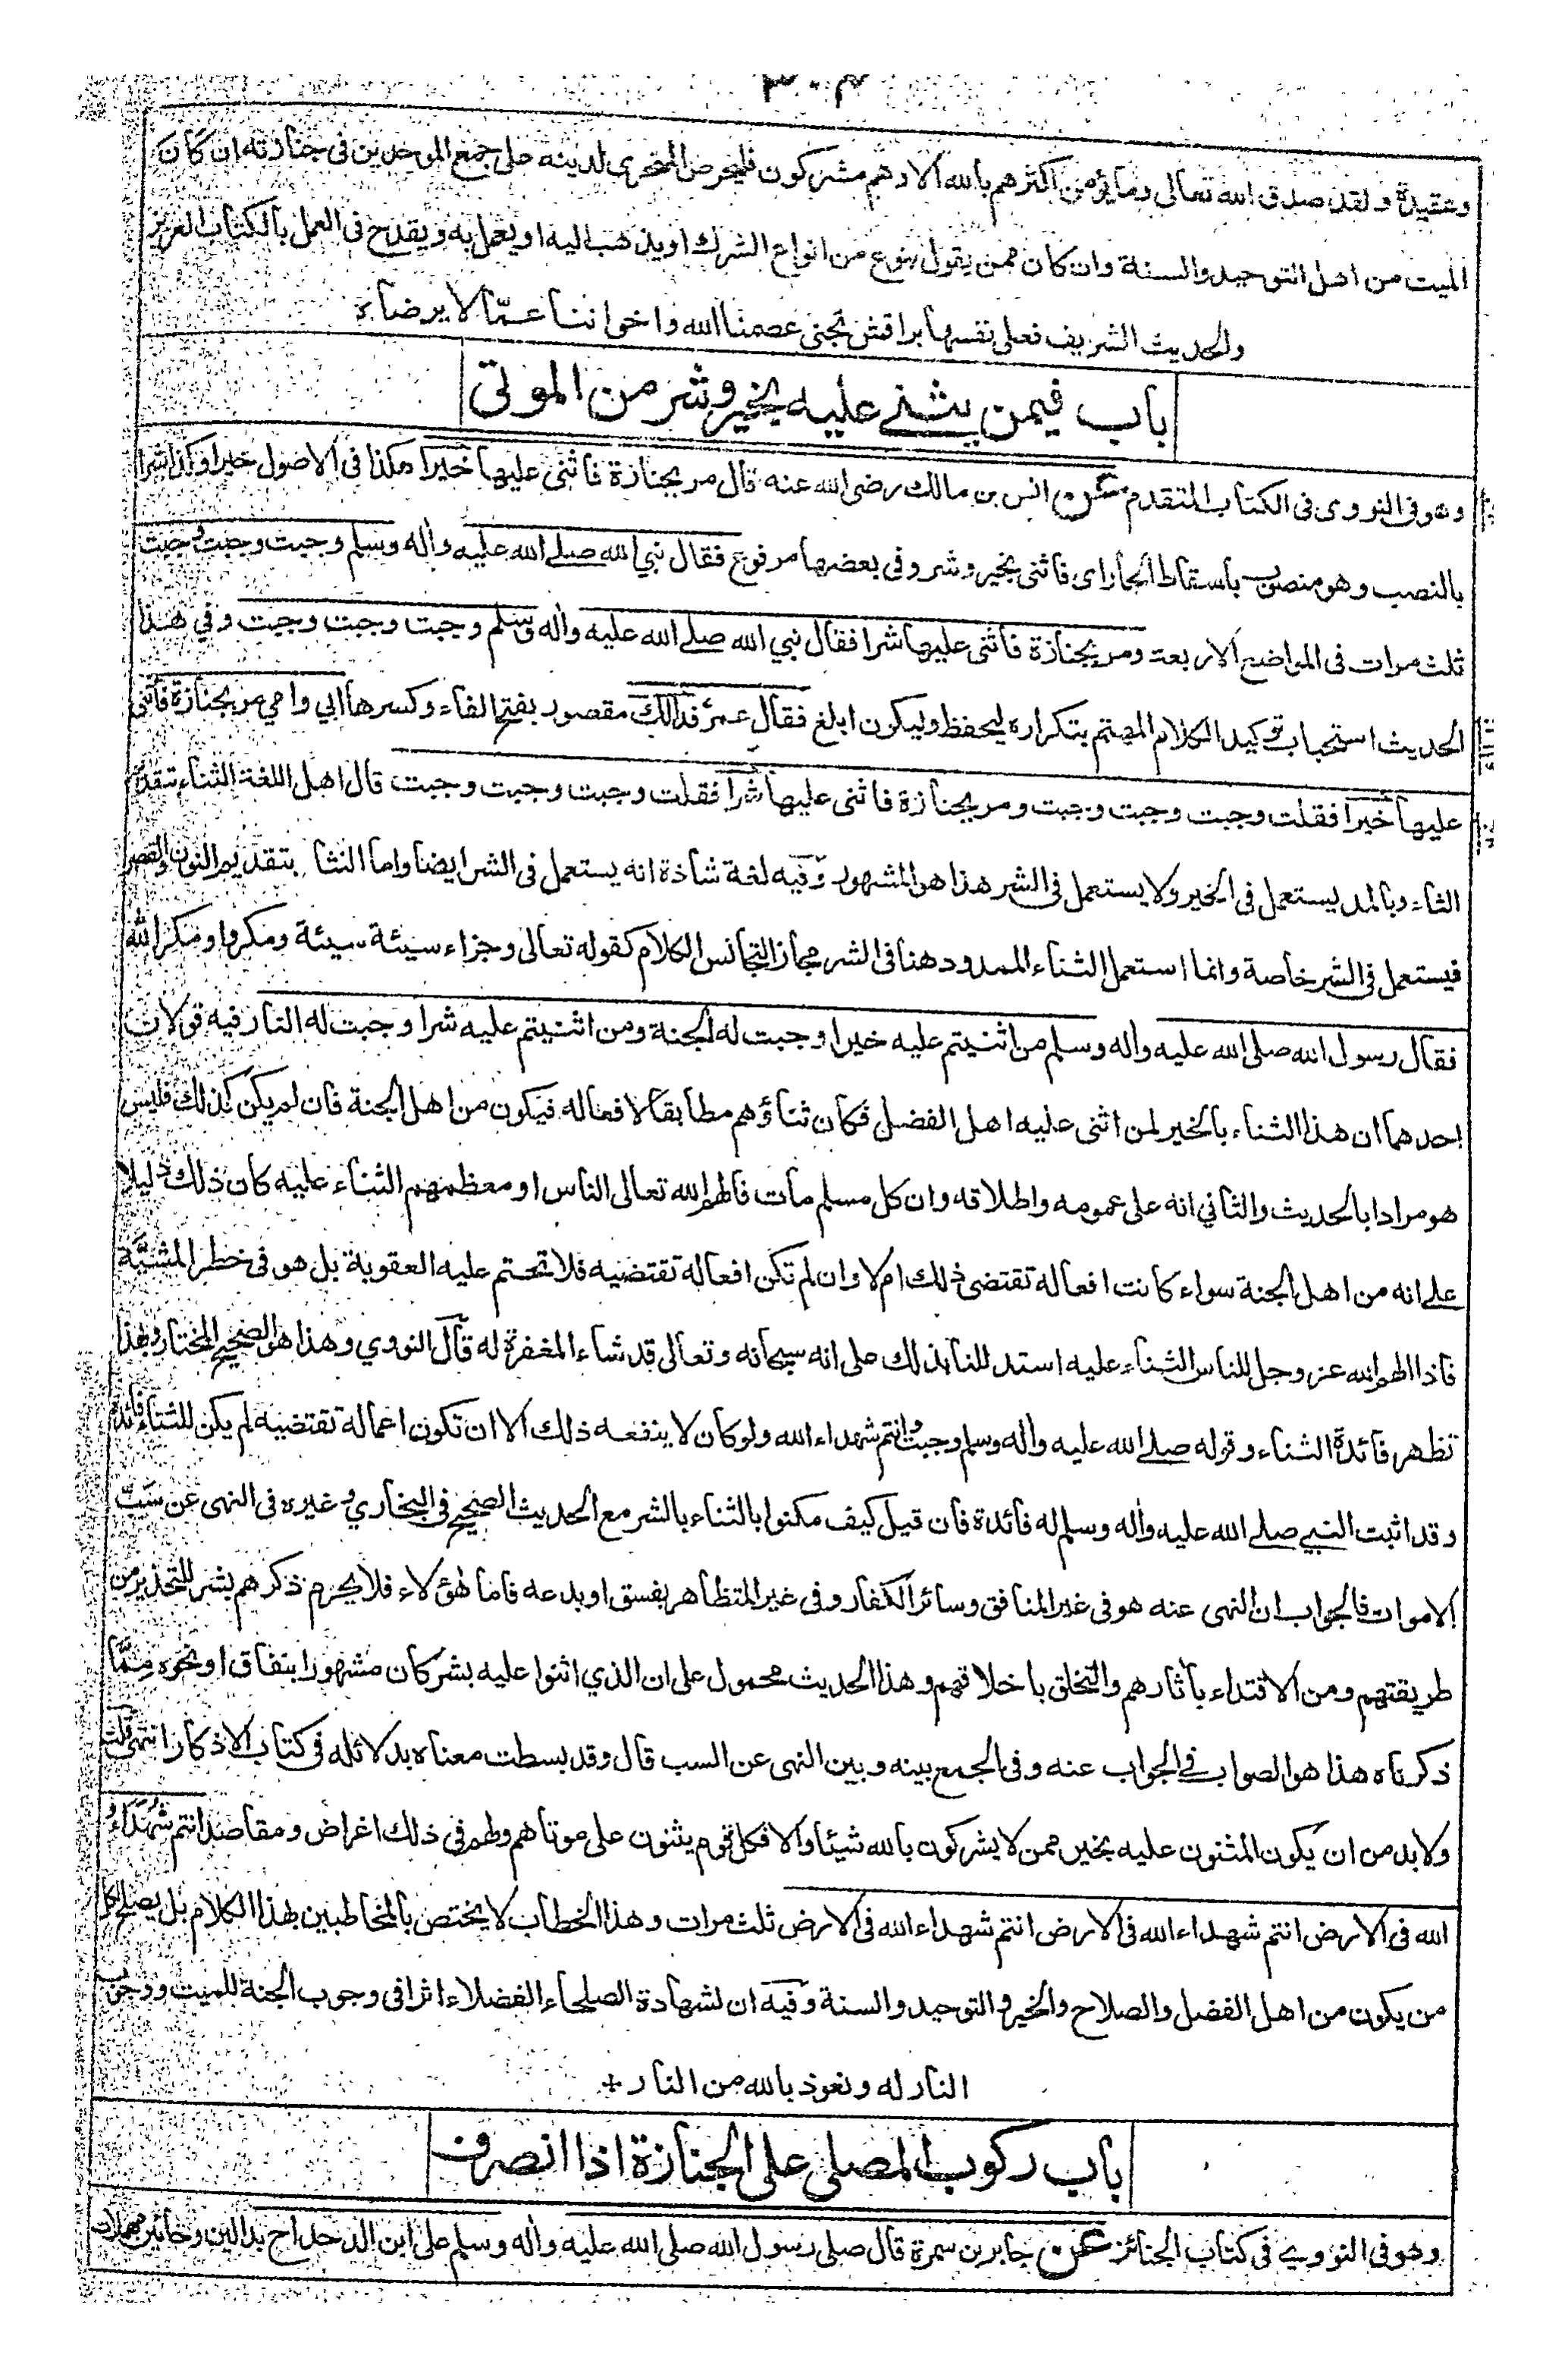 ٣٠٤
وعقيدة ولقد صدق الله تعالى وما يؤمن اكثرهم بالله الا وهم مشركون فليحرص المتحرى لدينه على جمع الموحدين فى جنازته ان كان
الميت من اهل التوحيد والسنة وان كان ممن يقول بنوع من انواع الشرك او يذهب اليه او يعمل به ويقدح فى العمل بالكتاب العزيز
والحديث الشريف فعلى نفسها براقش تجنى عصمنا الله واخواننا عمّا لا يرضاه
باب فيمن يثنى عليه بخير وشر من الموتى
وهو فى النووى فى الكتاب المتقدم عن انس بن مالك رضى الله عنه قال مر بجنازة فاثنى عليها خيرا هكذا فى الاصول خيرا وكذا شرا
بالنصب وهو منصوب باسقاط الجار اى فاثنى بخير وشر وفى بعضها مرفوع فقال نبي الله صلى الله عليه واله وسلم وجبت وجبت وجبت
ثلث مرات فى المواضع الاربعة ومر بجنازة فاثنى عليها شرا فقال نبي الله صلى الله عليه واله وسلم وجبت وجبت وجبت وفي هذا
الحديث استحباب توكيد الكلام المهتم بتكراره ليحفظ وليكون ابلغ فقال عمر فدالك مقصور بفتح الفاء وكسرها ابي وامي مر بجنازة فاثنى
عليها خيرا فقلت وجبت وجبت وجبت ومر بجنازة فاثنى عليها شرا فقلت وجبت وجبت وجبت قال اهل اللغة الثناء بتقديم
الثاء وبالمد يستعمل فى الخير ولا يستعمل فى الشر هذا هو المشهور وفيه لغة شاذة انه يستعمل فى الشر ايضا واما النثا بتقديم النون والقصر
فيستعمل فى الشر خاصة وانما استعمل الثناء الممدود هنا فى الشر مجازا لتجانس الكلام كقوله تعالى وجزاء سيئة سيئة ومكروا ومكر الله
فقال رسول الله صلى الله عليه واله وسلم من اثنيتم عليه خيرا وجبت له الجنة ومن اثنيتم عليه شرا وجبت له النار فيه قولان
احدهما ان هذا الثناء بالخير لمن اثنى عليه اهل الفضل فكان ثناؤهم مطابقا لافعاله فيكون من اهل الجنة فان لم يكن كذلك فليس
هو مرادا بالحديث والثاني انه على عمومه واطلاقه وان كل مسلم مات فالهم الله تعالى الناس او معظمهم الثناء عليه كان ذلك دليلا
على انه من اهل الجنة سواء كانت افعاله تقتضى ذلك ام لا وان لم تكن افعاله تقتضيه فلا تحتم عليه العقوبة بل هو فى خطر المشيّة
فاذا الهم الله عز وجل للناس الثناء عليه استدللنا بذلك على انه سبحانه وتعالى قد شاء المغفرة له قال النووي وهذا هو الصحيح المختار وبهذا
تظهر فائدة الثناء وقوله صلى الله عليه واله وسلم وجبت وانتم شهداء الله ولو كان لا ينفعه ذلك الا ان تكون اعماله تقتضيه لم يكن للثناء فائدة
وقد اثبت النبي صلى الله عليه واله وسلم له فائدة فان قيل كيف مكنوا بالثناء بالشر مع الحديث الصحيح فى البخاري وغيره فى النهى عن سبّ
الاموات فالجواب ان النهى عنه هو فى غير المنافق وسائر الكفار وفى غير المتظاهر بفسق او بدعه فاما هؤلاء فلا يحرم ذكرهم بشر للتحذير من
طريقتهم ومن الاقتداء باثارهم والتخلق باخلاقهم وهذا الحديث محمول على ان الذي اثنوا عليه بشر كان مشهورا بنفاق او نحوه ممّا
ذكرناه هذا هو الصواب فى الجواب عنه وفى الجمع بينه وبين النهى عن السب قال وقد بسطت معناه بدلائله فى كتاب الاذكار انتهى قلت
ولا بد من ان يكون المثنون عليه بخير ممن لا يشركون بالله شيئا والا فكل قوم يثنون على موتاهم ولهم فى ذلك اغراض ومقاصد انتم شهداء
الله فى الارض انتم شهداء الله فى الارض انتم شهداء الله فى الارض ثلث مرات وهذا الخطاب لا يختص بالمخاطبين بهذا الكلام بل يصلح لكل
من يكون من اهل الفضل والصلاح والخير والتوحيد والسنة وفيه ان لشهادة الصلحاء الفضلاء اثرا فى وجوب الجنة للميت ووجوب
النار له ونعوذ بالله من النار +
باب ركوب المصلى على الجنازة اذا انصرف
وهو فى النووي فى كتاب الجنائز عن جابر بن سمرة قال صلى رسول الله صلى الله عليه واله وسلم على ابن الدحداح بدالين وحائين مهملات